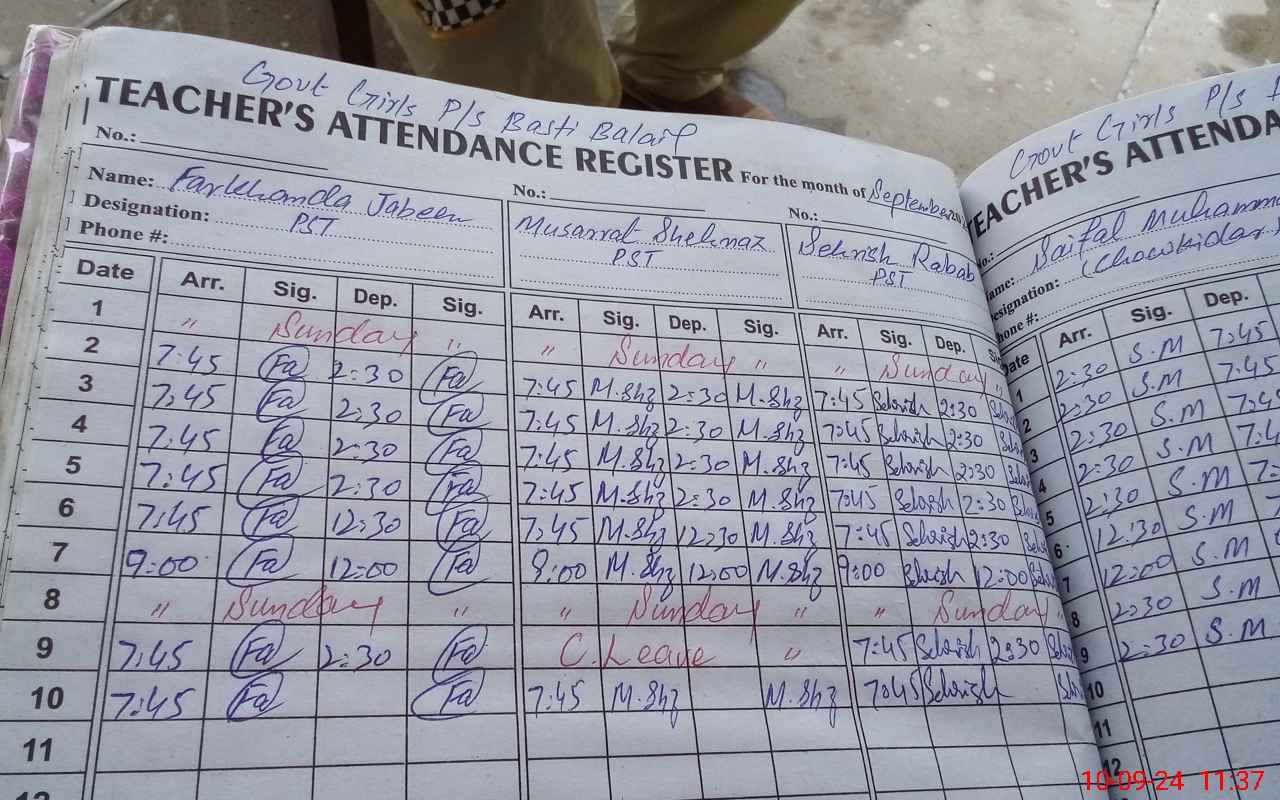 Govt Girls P/s Basti Balail
TEACHER'S ATTENDANCE REGISTER For the month of September
No.: No.: No.:
Name: Farkhanda Jabeen Musarrat Shehnaz Sehrish Rabab
Designation: PST PST PST
Phone #:
Date Arr. Sig. Dep. Sig. Arr. Sig. Dep. Sig. Arr. Sig. Dep.
1 " Sunday " " Sunday " " Sunday "
2 7:45 Fa 2:30 Fa 7:45 M.Shz 2:30 M.Shz 7:45 Sehrish 2:30
3 7:45 Fa 2:30 Fa 7:45 M.Shz 2:30 M.Shz 7:45 Sehrish 2:30
4 7:45 Fa 2:30 Fa 7:45 M.Shz 2:30 M.Shz 7:45 Sehrish 2:30
5 7:45 Fa 2:30 Fa 7:45 M.Shz 2:30 M.Shz 7:45 Sehrish 2:30
6 7:45 Fa 12:30 Fa 7:45 M.Shz 12:30 M.Shz 7:45 Sehrish 2:30
7 9:00 Fa 12:00 Fa 9:00 M.Shz 12:00 M.Shz 9:00 Sehrish 12:00
8 " Sunday " " Sunday " " Sunday "
9 7:45 Fa 2:30 Fa C.Leave " 7:45 Sehrish 2:30
10 7:45 Fa Fa 7:45 M.Shz M.Shz 7:45 Sehrish
11
Govt Girls P/s
TEACHER'S ATTENDA
No.:
Name: Saifal Muhamm
Designation: (Chowkidar)
Phone #:
Date Arr. Sig. Dep.
1 2:30 S.M 7:45
2 2:30 S.M 7:45
3 2:30 S.M
4 2:30 S.M
5 2:30 S.M
6 12:30 S.M
7 12:00 S.M
8 2:30 S.M
9 2:30 S.M
10
11
12
10-09-24 11:37